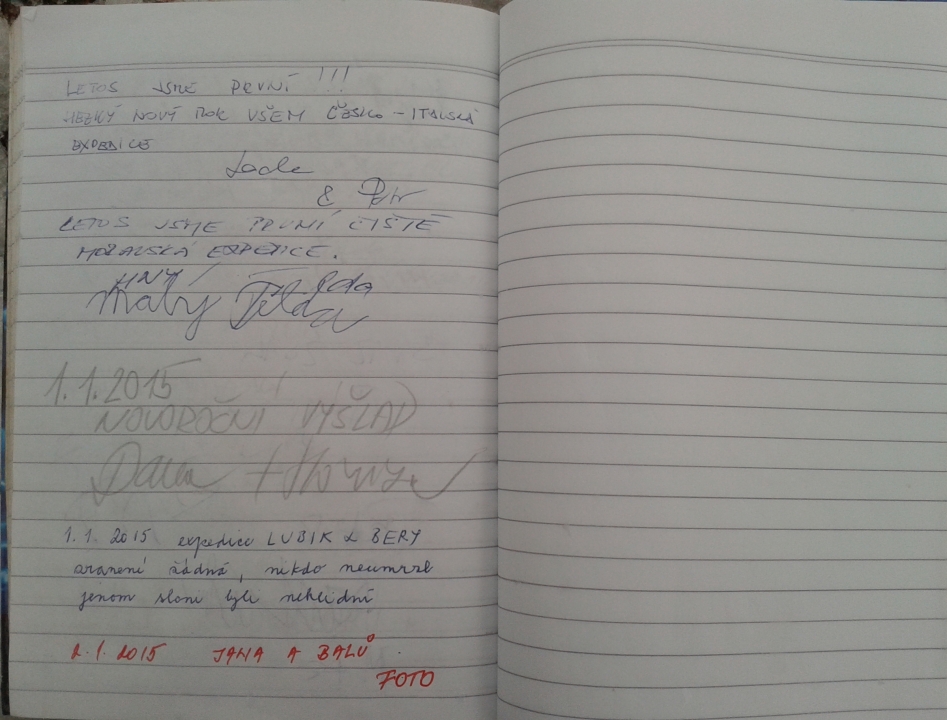 LETOS JSME PRVNÍ !!!
HEZKÝ NOVÝ ROK VŠEM ČESKO - ITALSKÁ
EXPEDICE
& Petr
LETOS JSME PRVNÍ ČISTĚ
MORAVSKÁ EXPEDICE.
HNY
1.1.2015
NOVOROČNÍ VÝŠLAP
1.1. 2015 expedice LUBIK & BERY
zranení žádná, nikdo neumrzl
jenom sloni byli neklidní
2.1.2015 JANA A BALŮ
FOTO